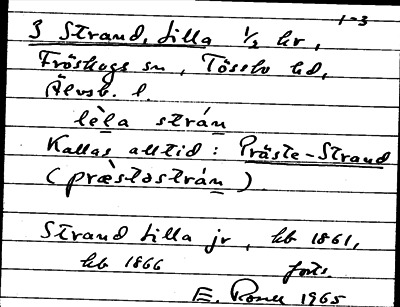 1-3
3 Strand, Lilla 1/2 hr,
Fröskogs sn, Tössbo hd,
Älvsb. l.
lèla strán
Kallas alltid: Präste-Strand
(præ̀stəstrán)
Strand Lilla jr, hb 1861,
hb 1866 forts
E. Rosell 1965